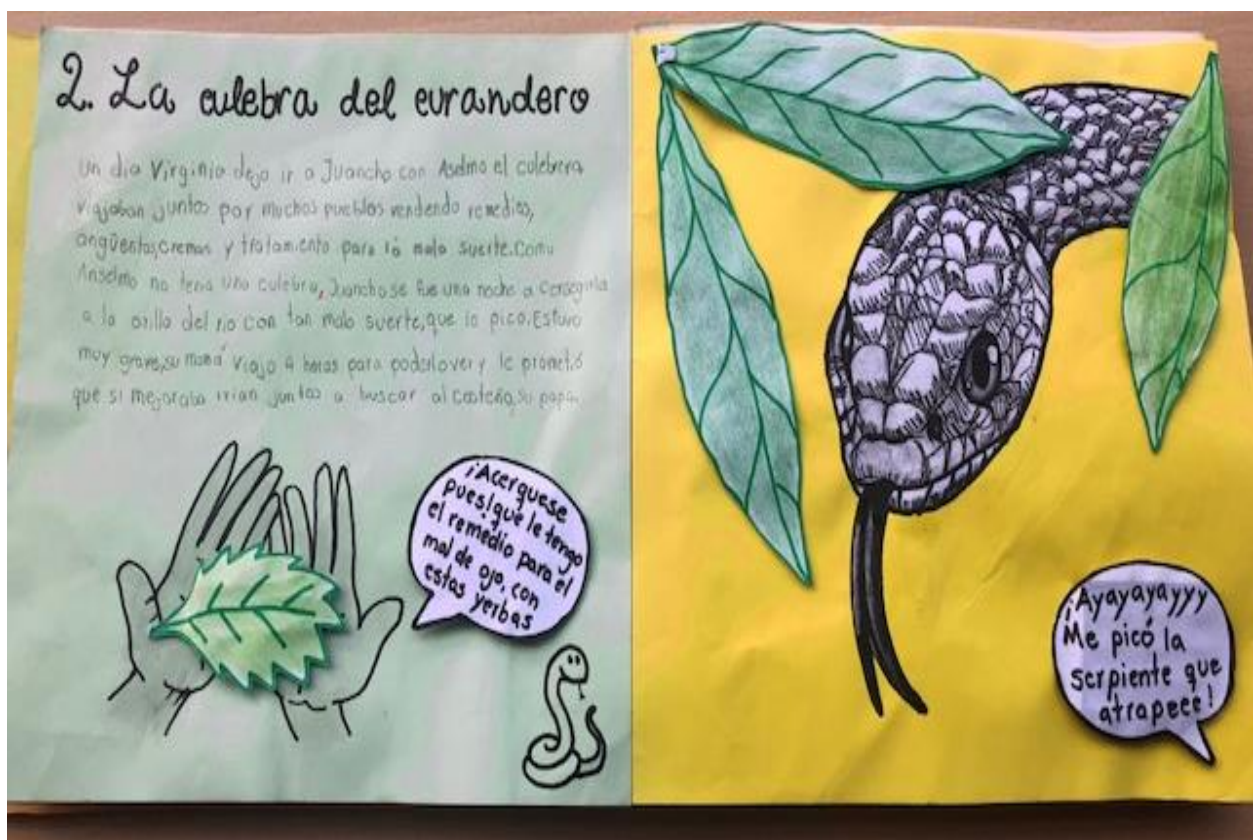 2. La culebra del curandero
Un dia Virginia dejo ir a Juancho con Aselmo el culebrero
viajaban juntos por muchos pueblos vendendo remedios,
ungüentos,cremas y tratamiento para la mala suerte.Como
Anselmo no tenia una culebra, Juancho se fue una noche a conseguirla
a la orilla del rio con tan mala suerte,que lo pico.Estuvo
muy grave,su mamá viajo 4 horas para poderlo ver y le prometió
que si mejoraba irian juntos a buscar al costeño,su papa.
¡Acerquese
pues!que le tengo
el remedio para el
mal de ojo, con
estas yerbas
¡Ayayayayyy
Me picó la
serpiente que
atrapeee!